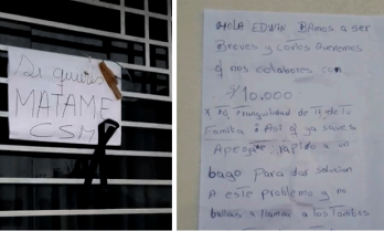 Si quieres
MATAME
CSM
HOLA EDWIN BAmos a ser
Breves y cortos queremos
q nos colabores con
S/ 10.000
x la tranquilidad de ti y de tu
Familia Asi q ya sabes
Apegate rapido a un
bago Para dar solucion
A este problema y no
a llamar a los